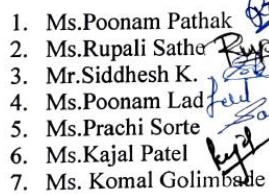 1. Ms.Poonam Pathak
2. Ms.Rupali Sathe
3. Mr.Siddhesh K.
4. Ms.Poonam Lad
5. Ms.Prachi Sorte
6. Ms.Kajal Patel
7. Ms. Komal Golimbade